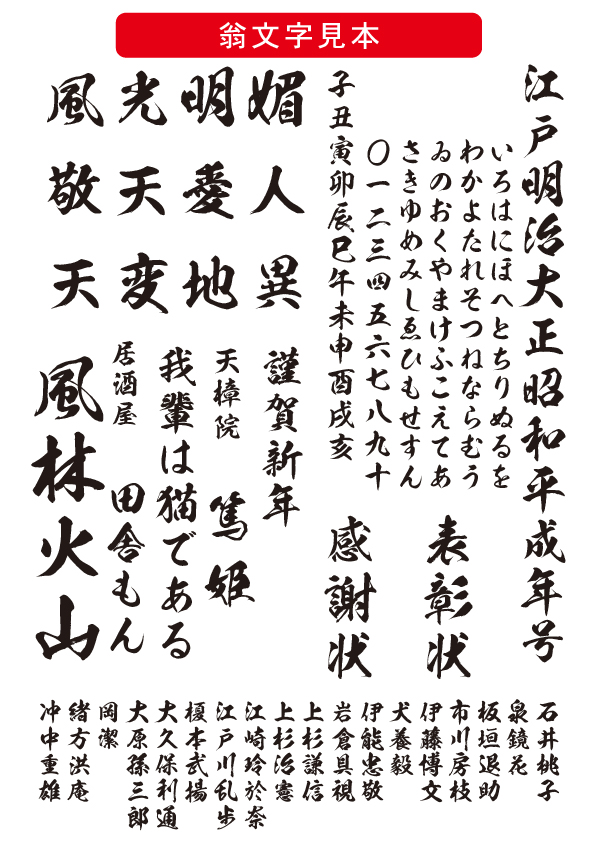 翁文字見本
江戸明治大正昭和平成年号
いろはにほへとちりぬるを
わかよたれそつねならむう
ゐのおくやまけふこえてあ
さきゆめみしゑひもせすん
〇一二三四五六七八九十
子丑寅卯辰巳午未申酉戌亥
表彰状
感謝状
媚人異
明愛地
光天変
風敬天
謹賀新年
天樟院 篤姫
我輩は猫である
居酒屋 田舎もん
風林火山
石井桃子
泉鏡花
板垣退助
市川房枝
伊藤博文
犬養毅
伊能忠敬
岩倉具視
上杉謙信
上杉治憲
江崎玲於奈
江戸川乱歩
榎本武揚
大久保利通
大原孫三郎
岡潔
緒方洪庵
冲中重雄